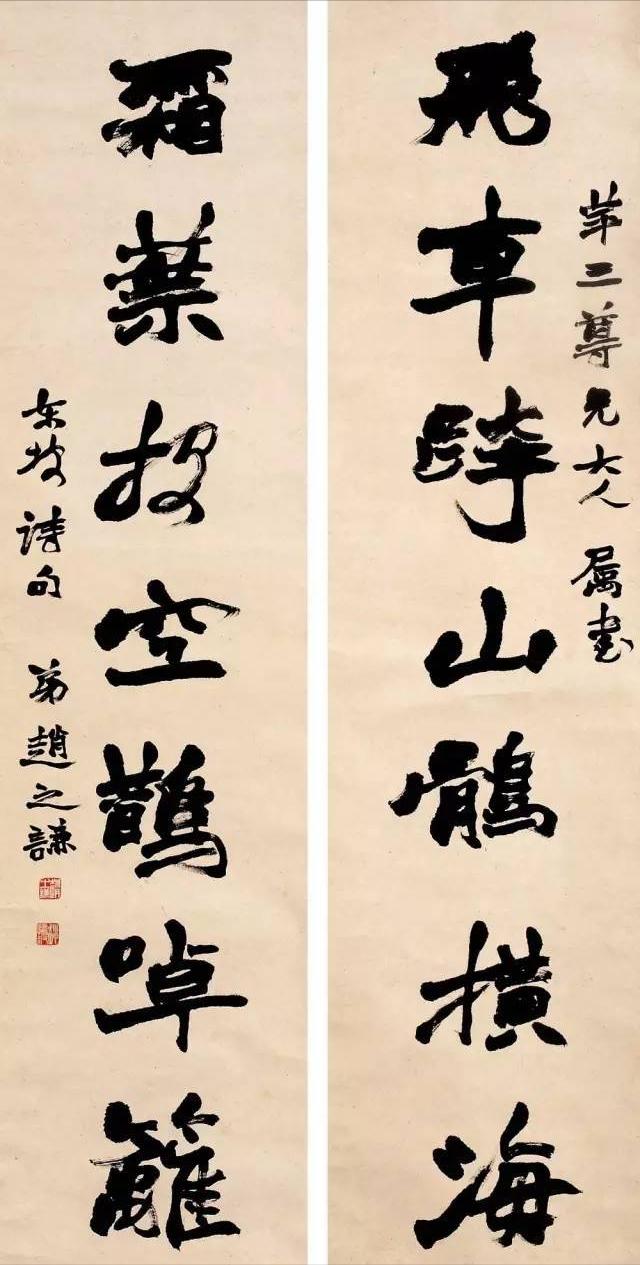 三尊兄大人屬書
飛車跨山鶻橫海
霜葉投空鵲啅籬
東坡詩句 弟趙之謙